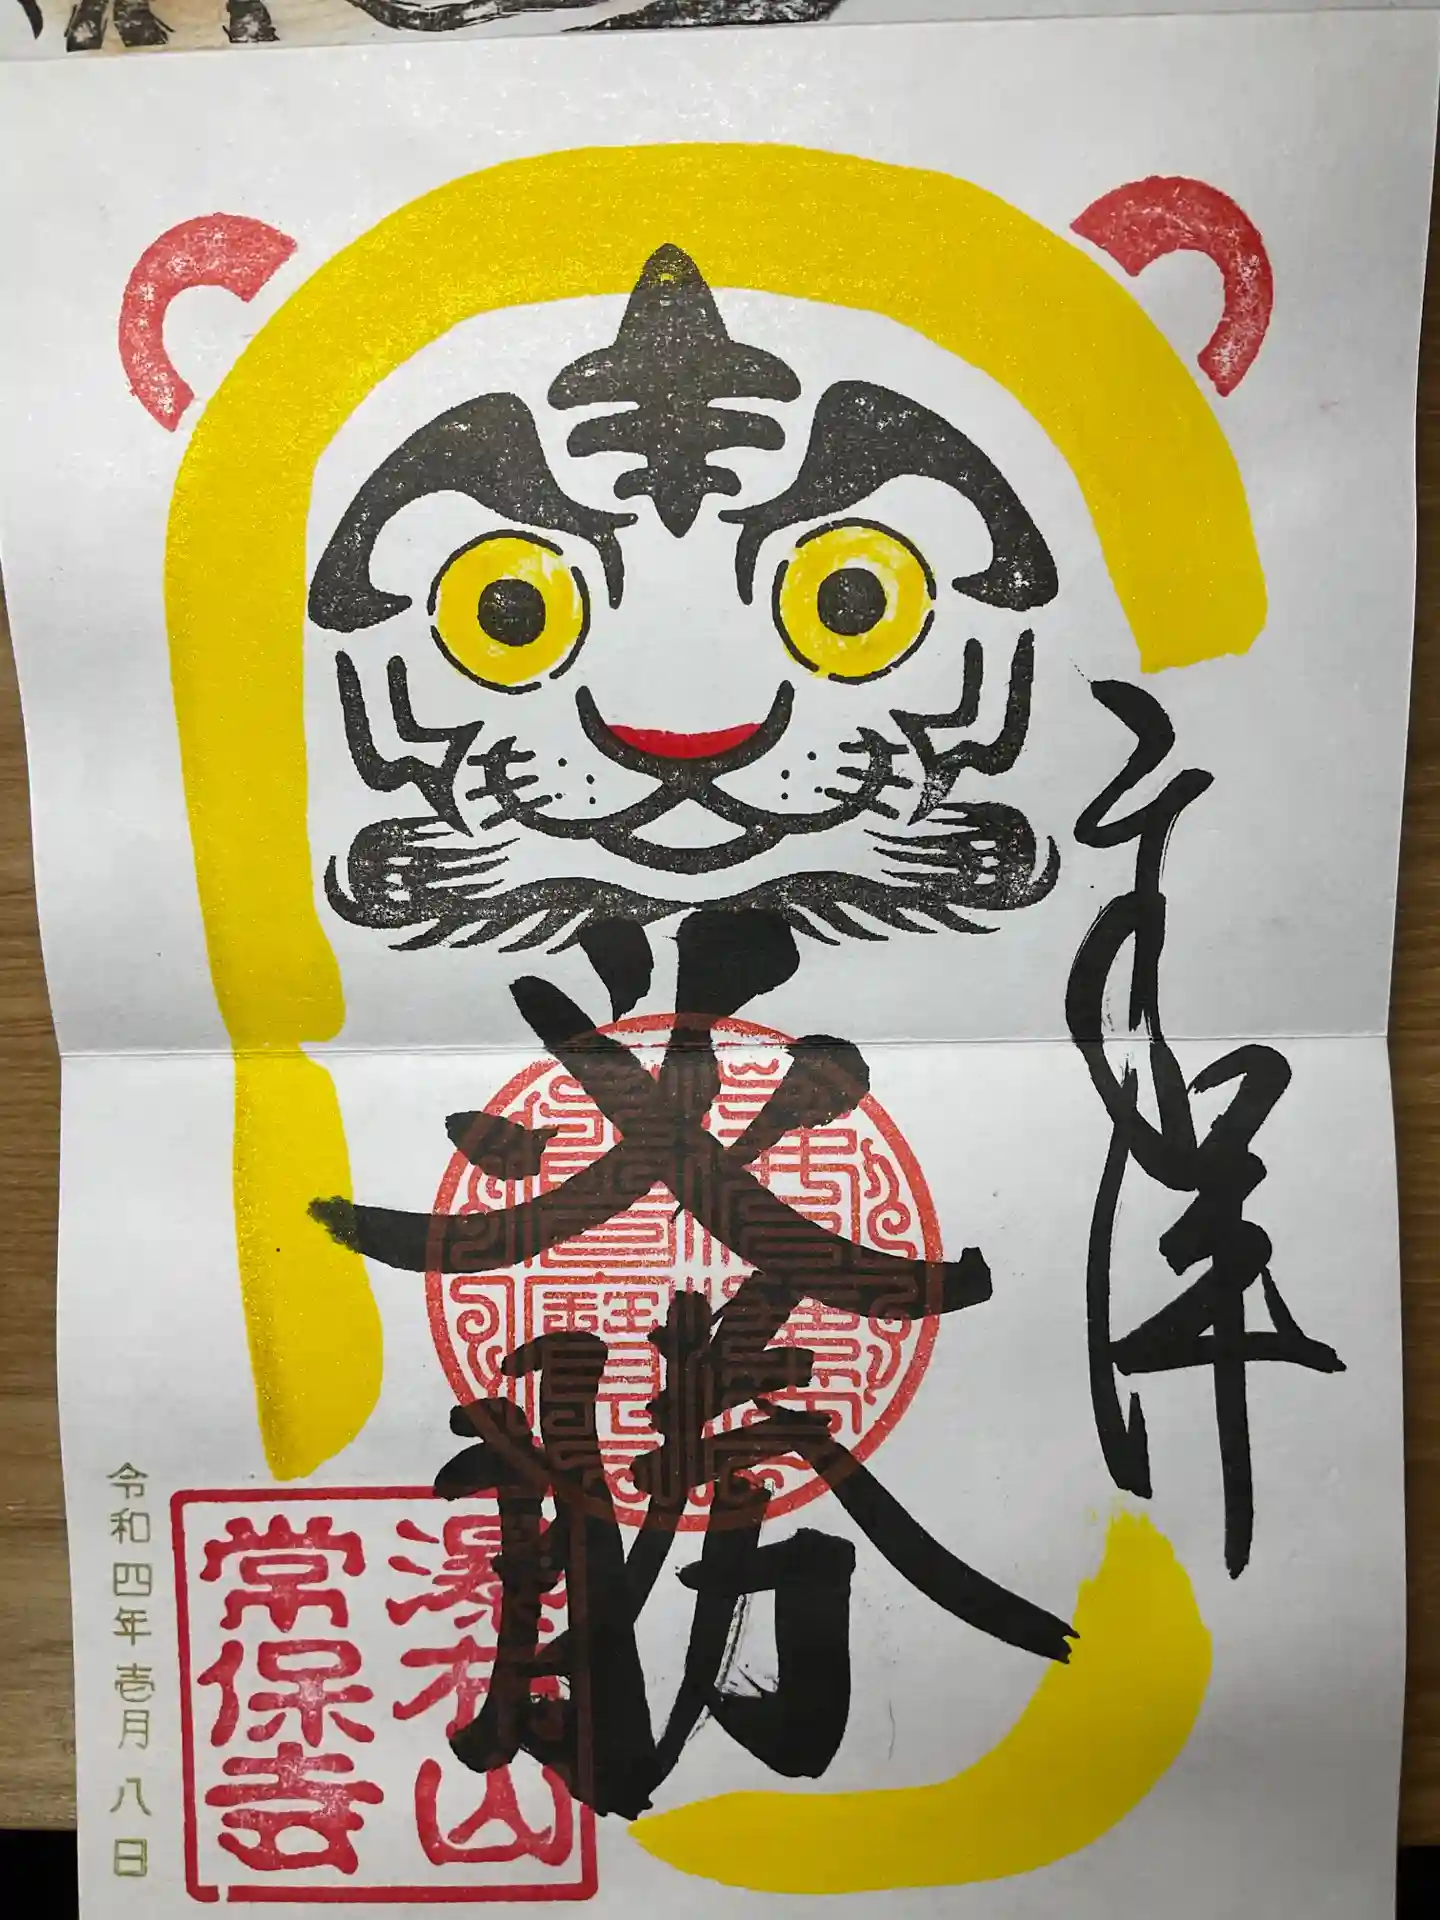 奉拝
必勝
瀑布山
常保寺
令和四年壱月八日